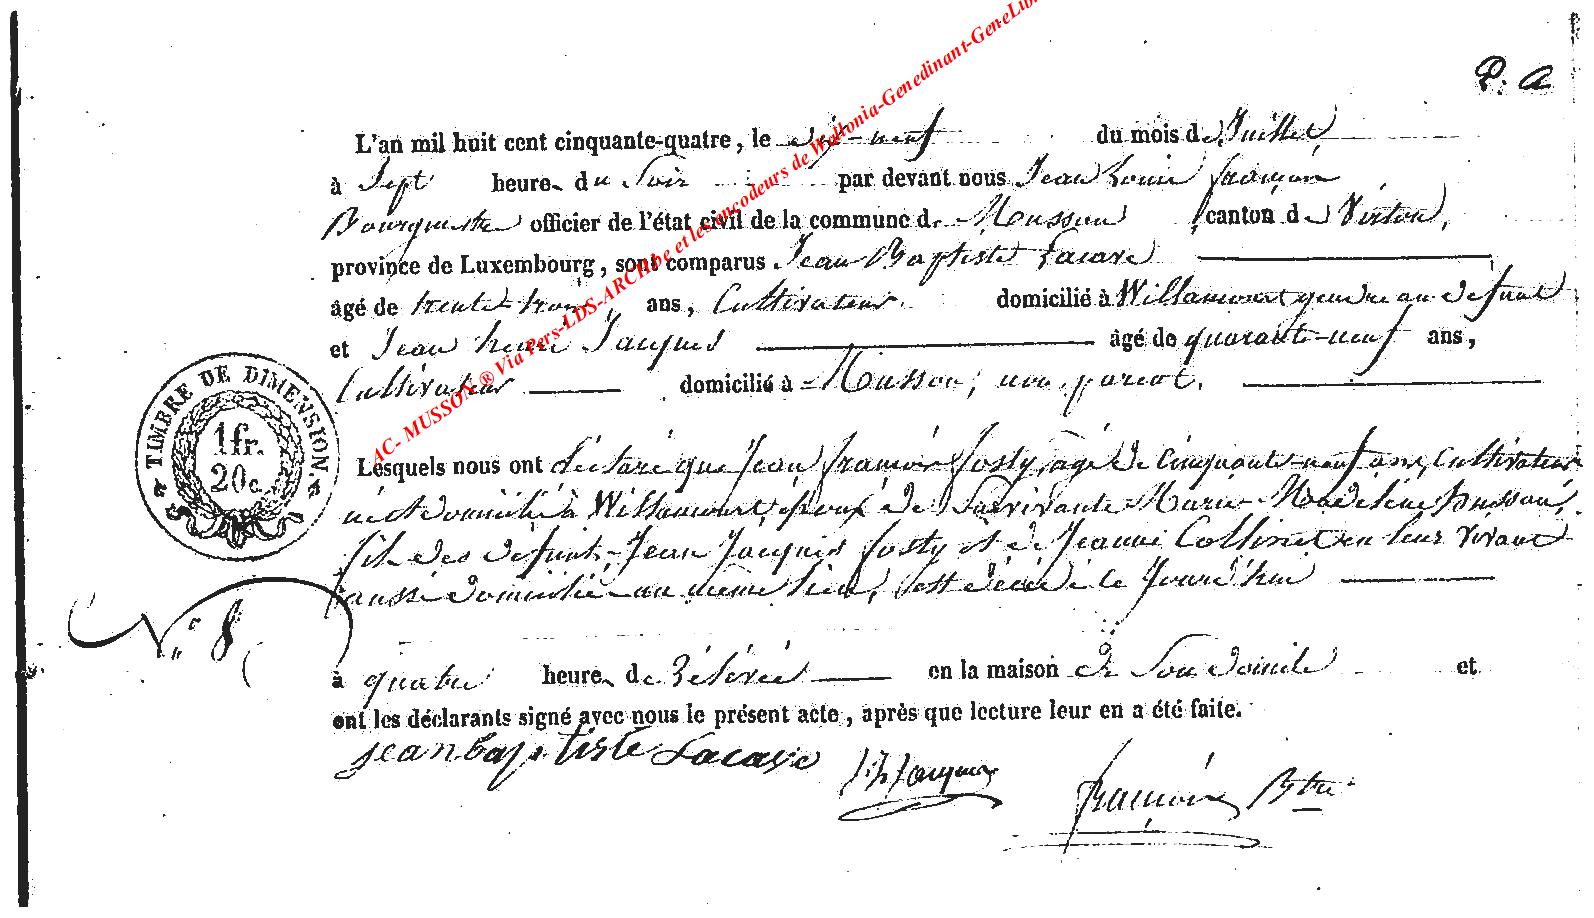 P. A
L'an mil huit cent cinquante-quatre, le dix-neuf du mois de Juillet
à Sept heure du Soir par devant nous Jean Louis françois
Bourguette officier de l'état civil de la commune de Musson canton de Virton,
province de Luxembourg, sont comparus Jean Baptiste Lacave
âgé de trente trois ans, Cultivateur domicilié à Willancourt gendre au défunt
et Jean henri Jacques âgé de quarante-neuf ans,
Cultivateur domicilié à Musson, non parent.
Lesquels nous ont déclaré que Jean françois Josty, agé de cinquante-neuf ans, Cultivateur
né et domicilié à Willancourt, époux de Survivante Marie Madeleine husson,
fils des défunts Jean Jacques Josty et de Jeanne Collinet en leur vivant
aussi domiciliés au même lieu, est décédé ce jourd'hui
N° 8
à quatre heure de rélévée en la maison de Son domicile et
ont les déclarants signé avec nous le présent acte, après que lecture leur en a été faite.
jean baptiste Lacave
J. h. Jacques
françois Btte
TIMBRE DE DIMENSION.
1fr.
20c.
AC- MUSSON ® Via Pers-LDS-ARCHbe et les encodeurs de Wallonia-Genedinant-GeneLib